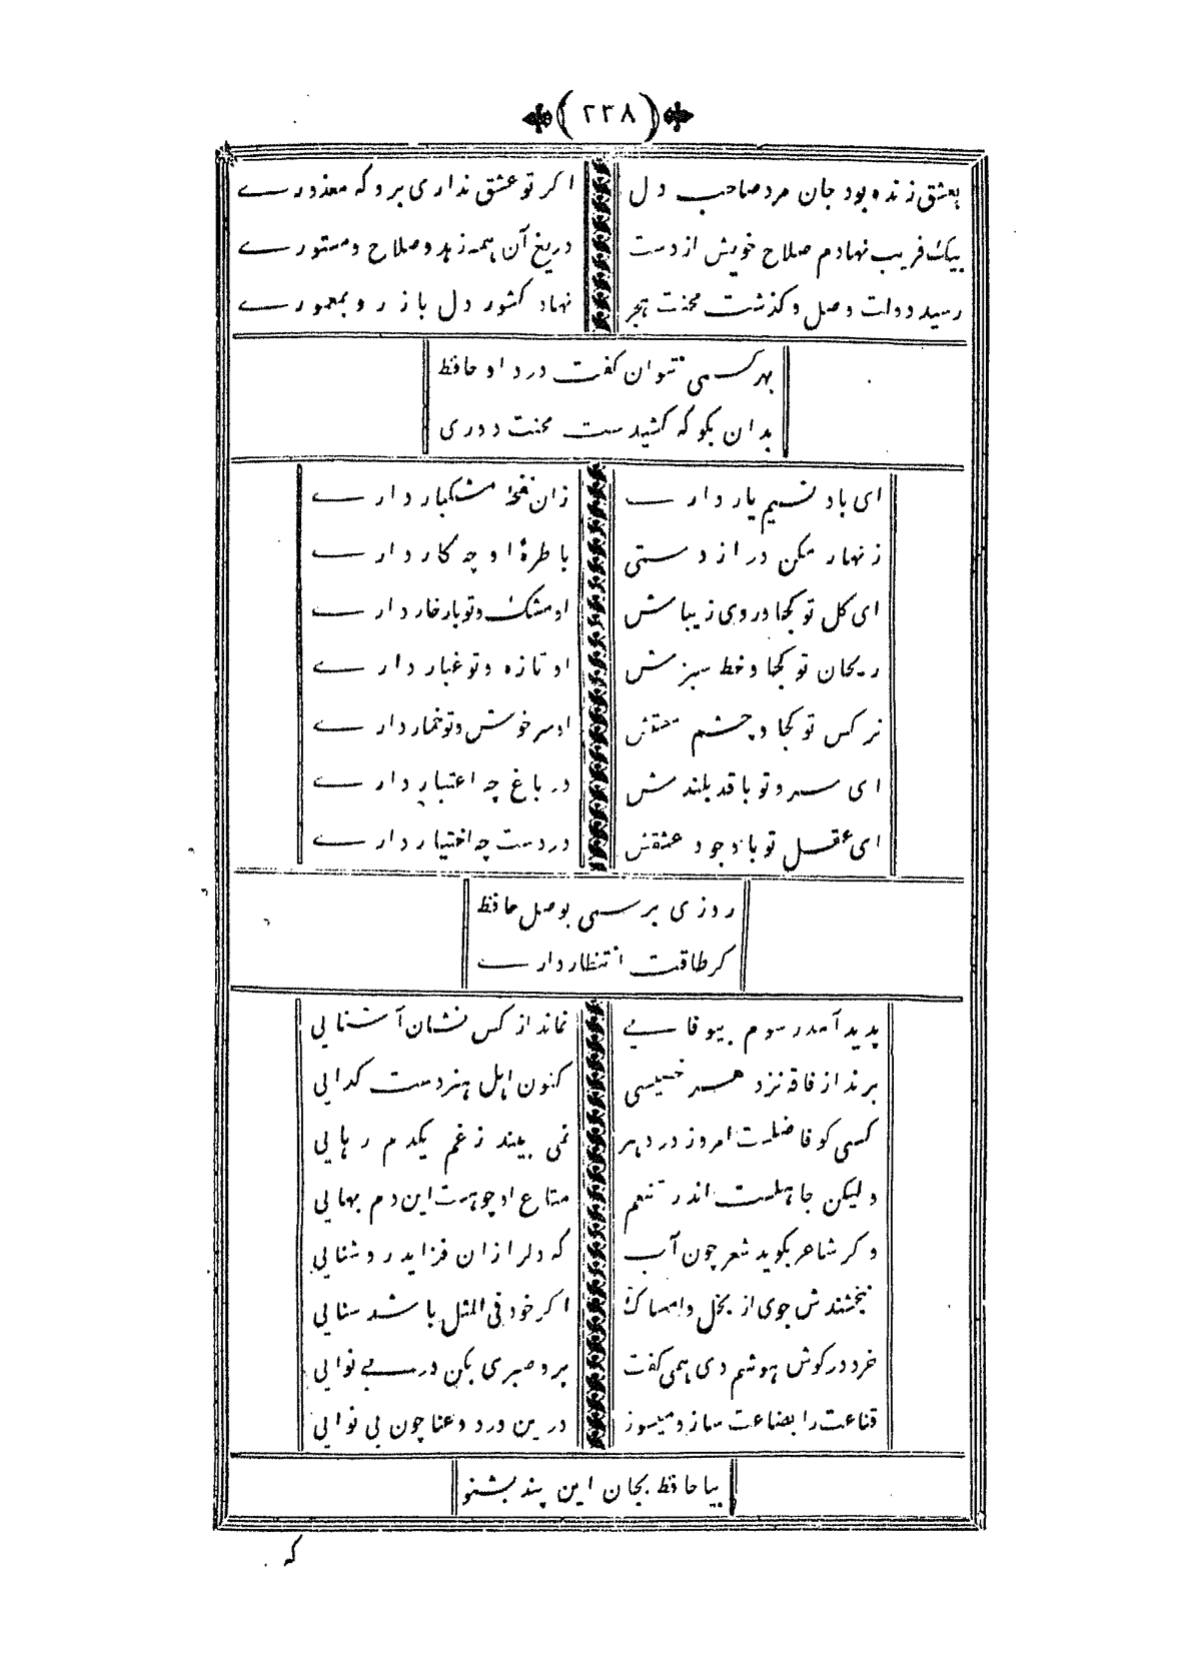 (٢٣٨)
بعشق زنده بود جان مرد صاحب دل اکر تو عشق نداری برو که معذوری
بیک فریب نهادم صلاح خویش از دست دریغ آن همه زهد و صلاح و مستوری
رسید دولت وصل و کذشت محنت هجر نهاد کشور دل باز رو بمعموری
بهر کسی نتوان کفت درد او حافظ
بدان بکو که کشیدست محنت دوری
ای باد نسیم یار داری زان نفحهٔ مشکبار داری
زنهار مکن دراز دستی با طرهٔ او چه کار داری
ای کل تو کجا و روی زیباش او مشک و تو بار خار داری
ریحان تو کجا و خط سبزش او تازه و تو غبار داری
نرکس تو کجا و چشم مستش او سرخوش و تو خمار داری
ای سرو تو با قد بلندش در باغ چه اعتبار داری
ای عقل تو با وجود عشقش در دست چه اختیار داری
روزی برسی بوصل حافظ
کر طاقت انتظار داری
پدید آمد رسوم بیوفایی نماند از کس نشان آشنایی
برند از فاقه نزد هر خسیسی کنون اهل هنر دست کدایی
کسی کو فاضلست امروز در دهر نمی بیند ز غم یکدم رهایی
ولیکن جاهلست اندر تنعم متاع او چو هست این دم بهایی
وکر شاعر بکوید شعر چون آب که دلرا زان فزاید روشنایی
نبخشندش جوی از بخل و امساک اکر خود فی المثل باشد سنایی
خرد در کوش هوشم دی همی کفت برو صبری بکن در بی نوایی
قناعت را بضاعت ساز و میسوز درین درد و عنا چون بی نوایی
بیا حافظ بجان این پند بشنو
که